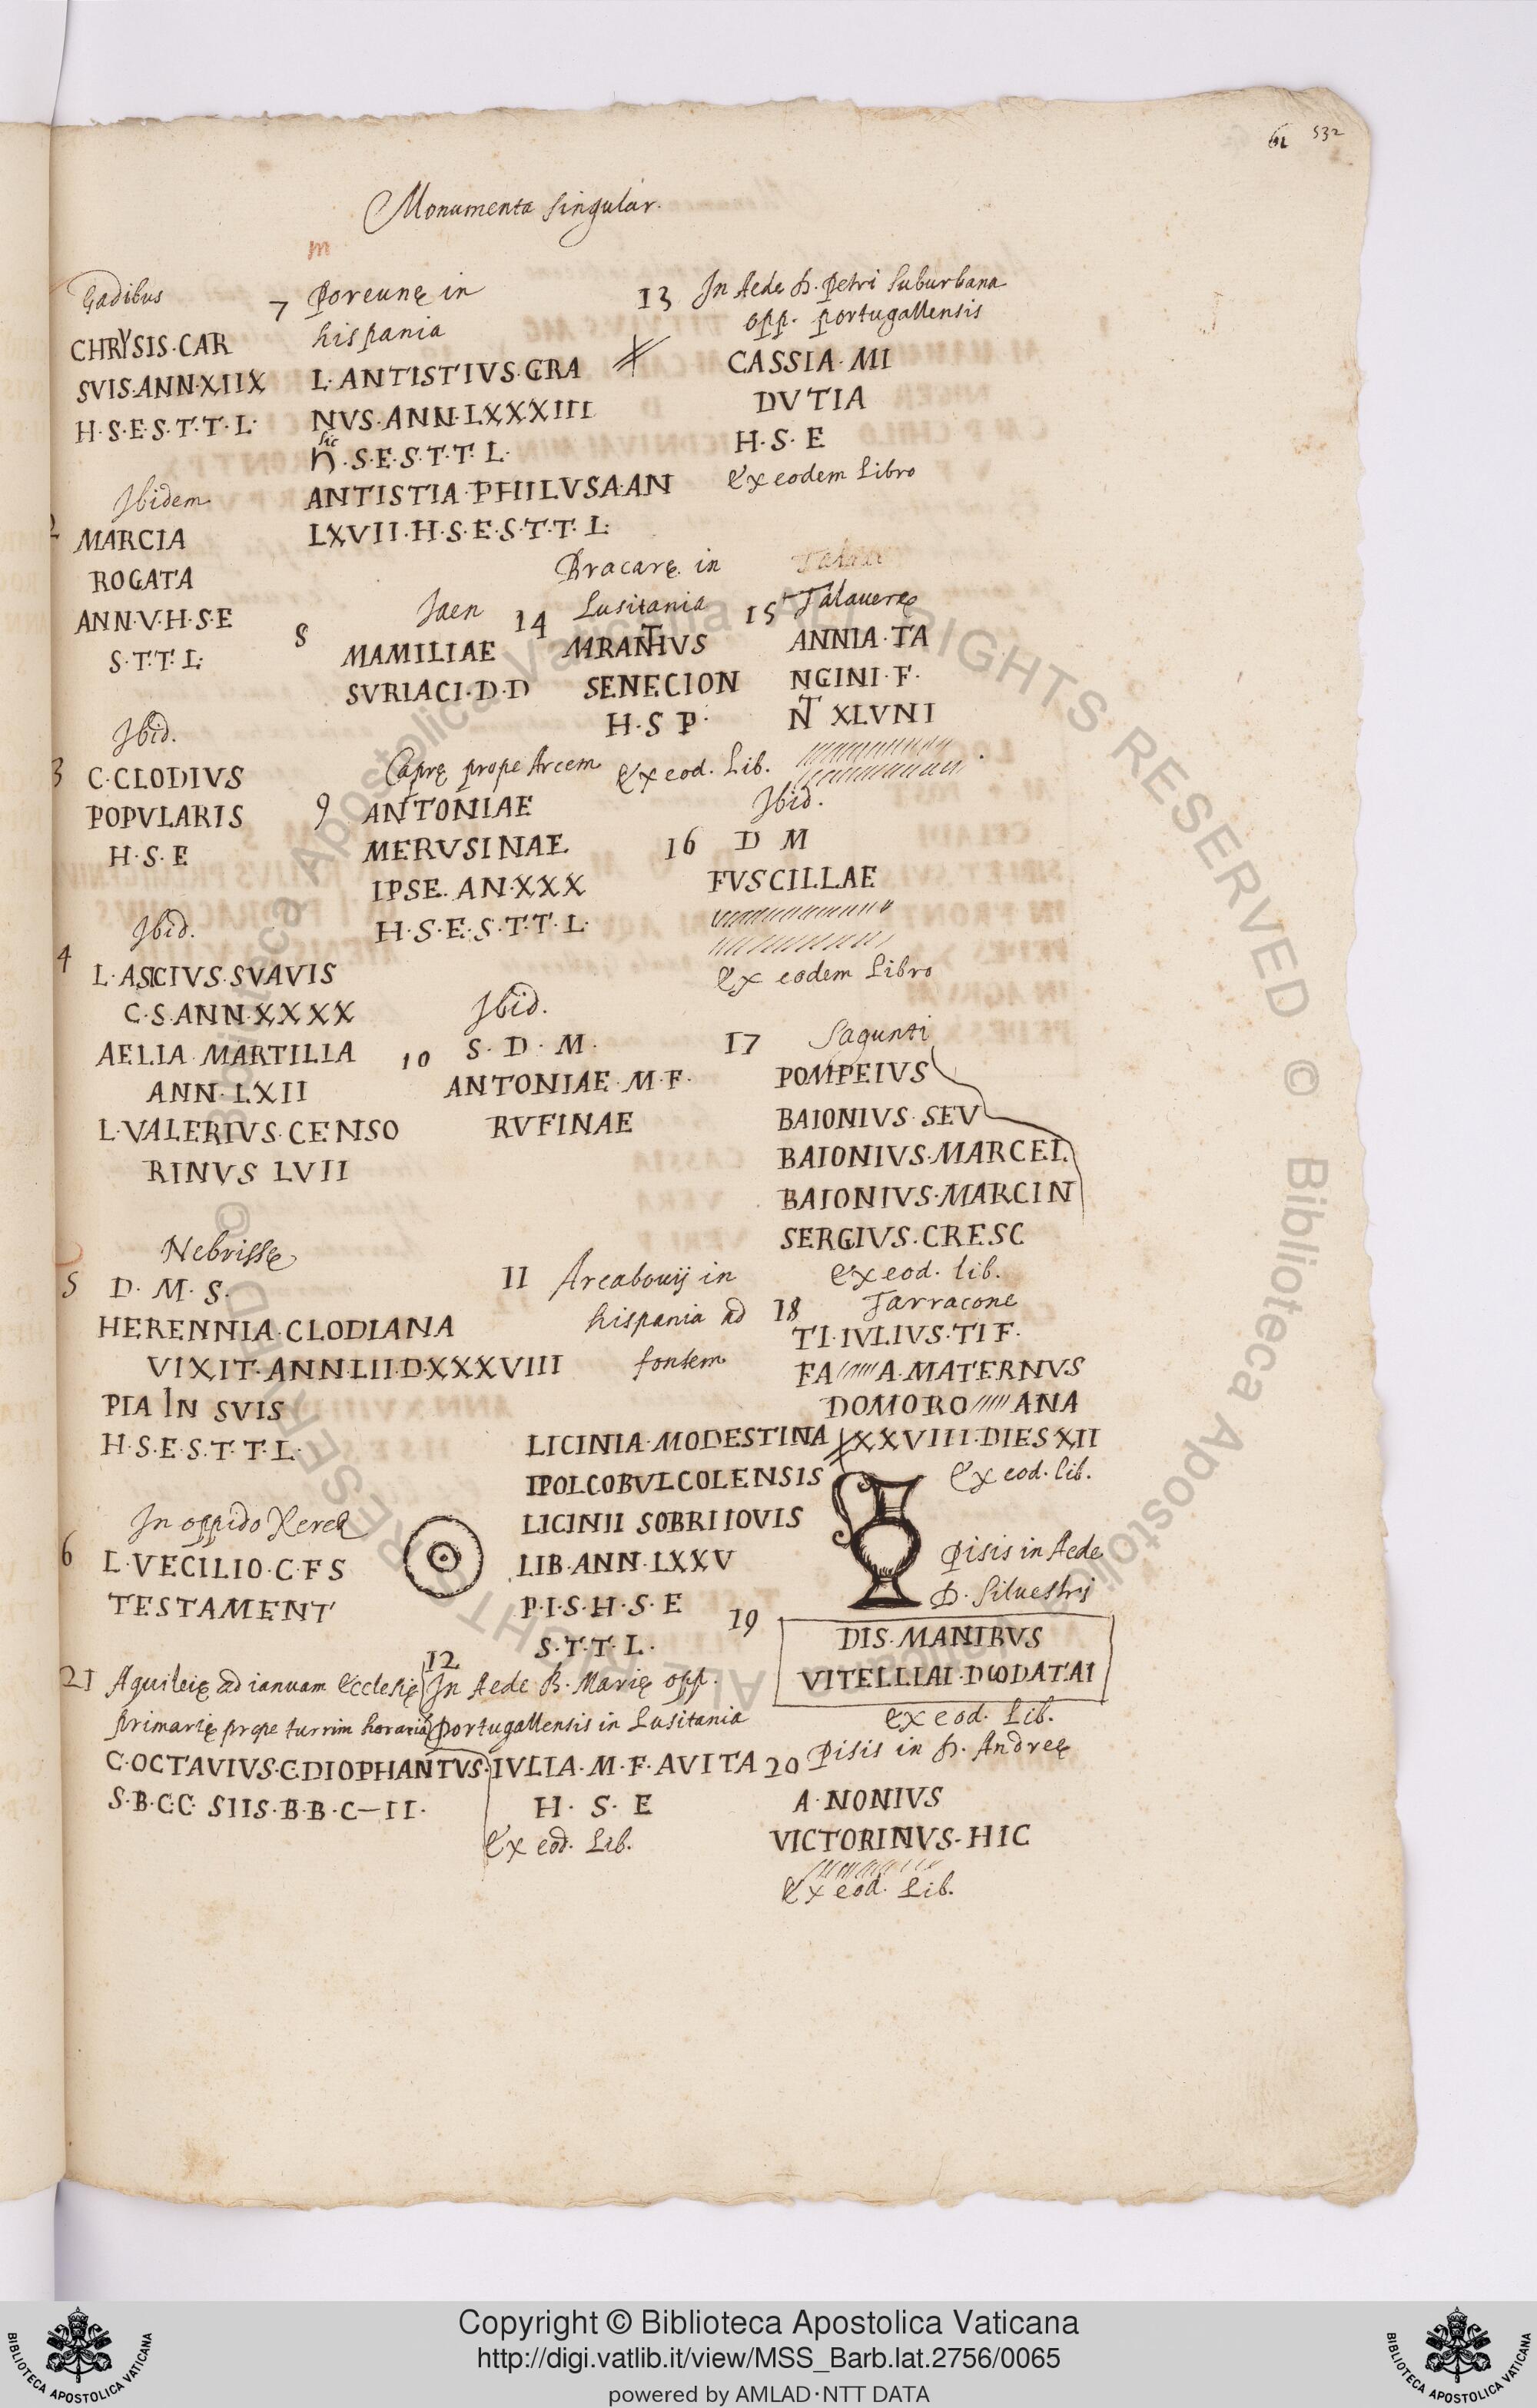 61 532
Monumenta singular.
m
Gadibus
CHRYSIS·CAR
SVIS·ANN·XIIX
H·S·E·S·T·T·L·
Ibidem
2
MARCIA
ROGATA
ANN·V·H·S·E
S·T·T·L·
Ibid.
3 C·CLODIVS
POPVLARIS
H·S·E
Ibid.
4
L·ASICIVS·SVAVIS
C·S·ANN·XXXX
AELIA MARTILIA
ANN·LXII
L·VALERIVS·CENSO
RINVS LVII
Nebrissę
5 D·M·S·
HERENNIA·CLODIANA
VIXIT·ANN·LII·D·XXXVIII
PIA IN SVIS
H·S·E·S·T·T·L·
In oppido Xerez
6 L·VECILIO·C·F S
TESTAMENT
21 Aquileię ad ianuam Ecclesię
primarię prope turrim horariā
C·OCTAVIVS·C·DIOPHANTVS·
S·B·C·C· SIIS·B·B·C—II·
7 Poreunę in
hispania
L·ANTISTIVS·GRA
NVS·ANN·LXXXIII
sic
h·S·E·S·T·T·L·
ANTISTIA·PHILVSA·AN
LXVII·H·S·E·S·T·T·L·
8 Jaen
MAMILIAE
SVRIACI·D·D
Caprę prope Arcem
9 ANTONIAE
MERVSINAE
IPSE·AN·XXX
H·S·E·S·T·T·L·
Ibid.
10 S·D·M·
ANTONIAE·M·F·
RVFINAE
11 Arcabouij in
hispania ad
fontem
LICINIA·MODESTINA
IPOLCOBVLCOLENSIS
LICINII SOBRI IOVIS
LIB·ANN·LXXV
P·I·S·H·S·E
S·T·T·L·
12
In Aede B. Marię opp.
portugallensis in Lusitania
IVLIA·M·F·AVITA
H·S·E
Ex eod. Lib.
13 In Aede D. Petri suburbana
opp. portugallensis
CASSIA·MI
DVTIA
H·S·E
Ex eodem Libro
Bracarę in
14 Lusitania
MRANTIVS
SENECION
H·S P·
Ex eod. Lib.
15 Talauerę
ANNIA·TA
NGINI·F·
NT XLVNI
Ibid.
16 D M
FVSCILLAE
Ex eodem Libro
17 Sagunti
POMPEIVS
BAIONIVS·SEV
BAIONIVS·MARCEL
BAIONIVS·MARCIN
SERGIVS·CRESC
Ex eod. lib.
18 Tarracone
TI·IVLIVS·TI F·
FA A·MATERNVS
DOMO RO ANA
XXVIII·DIES XII
Ex eod. lib.
Pisis in Aede
D. Siluestrj
19
DIS·MANIBVS
VITELLIAI·DωDATAI
Ex eod. Lib.
20 Pisis in D. Andreę
A·NONIVS
VICTORINVS·HIC
Ex eod. Lib.
Copyright © Biblioteca Apostolica Vaticana
http://digi.vatlib.it/view/MSS_Barb.lat.2756/0065
powered by AMLAD·NTT DATA
BIBLIOTECA APOSTOLICA VATICANA
BIBLIOTECA APOSTOLICA VATICANA
© Biblioteca Apostolica Vaticana ALL RIGHTS RESERVED © Biblioteca Apostolica Vaticana ALL RIGHTS RESERVED